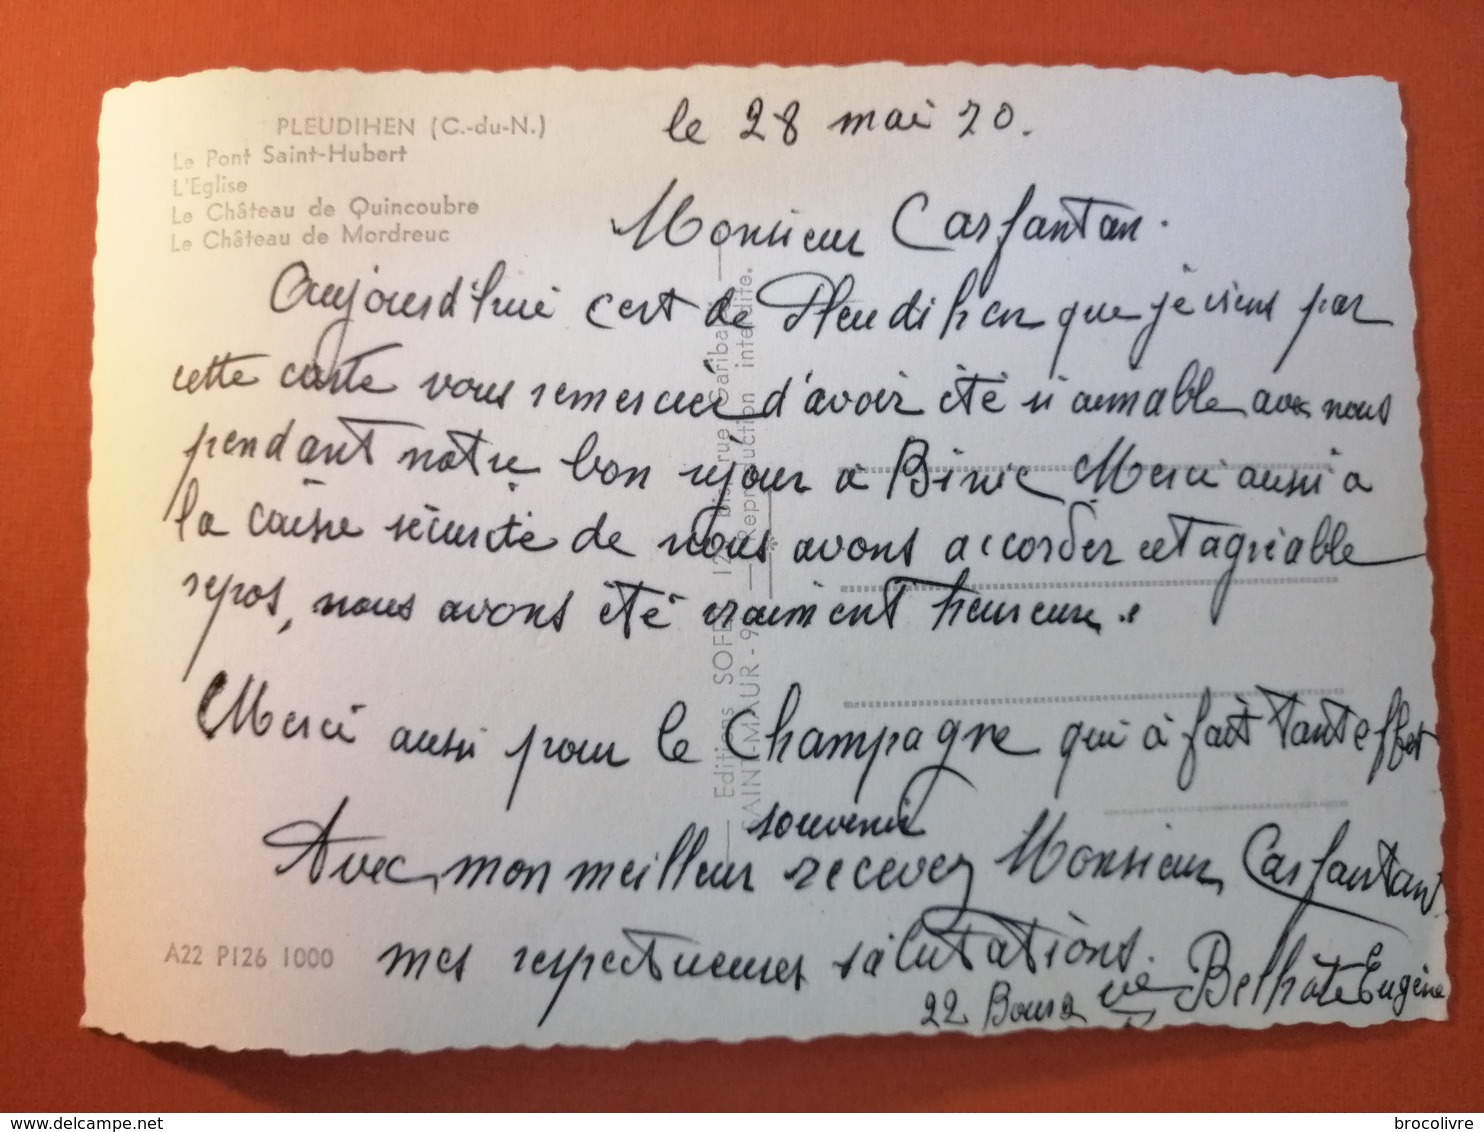 PLEUDIHEN (C.-du-N.)
Le Pont Saint-Hubert
L'Eglise
Le Château de Quincoubre
Le Château de Mordreuc
le 28 mai 70.
Monsieur Carfantan.
Aujourd'hui c'est de Pleudihen que je viens par
cette carte vous remercier d'avoir été si aimable avec nous
pendant notre bon séjour à Binic Merci aussi a
la caisse sécurité de nous avons accorder cet agréable
repos, nous avons été vraiment heureuse.
Merci aussi pour le Champagne qui à fait tant effet
souvenir
Avec mon meilleur recevez Monsieur Carfantan
mes respectueuses salutations.
22 ve Belhôte Eugène
A22 P126 1000
Editions bis, rue Garibaldi
SAINT-MAUR - Reproduction interdite.
www.delcampe.net
brocolivre